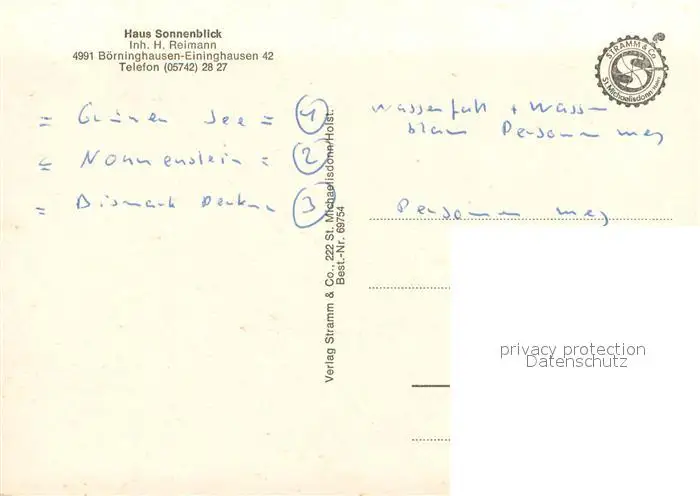 Haus Sonnenblick
Inh. H. Reimann
4991 Börninghausen-Eininghausen 42
Telefon (05742) 28 27
STRAMM & Co.
St. Michaelisdonn Holst.
= Grünen See = 1
= Nonnenstein = 2
= Bismark Denkm 3
Wasserfall + Wasser
blau Personen weg
Personen weg
Verlag Stramm & Co., 222 St. Michaelisdonn/Holst.
Best.-Nr. 69754
privacy protection
Datenschutz